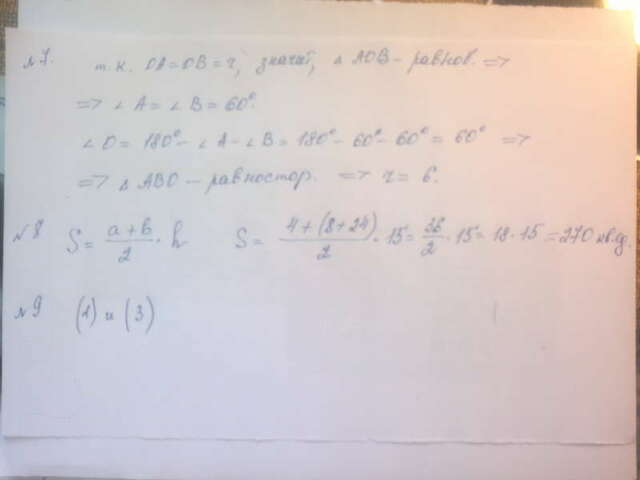 №7. т.к. OA=OB=r, значит, ∆ AOB - равноб. =>
=> ∠A = ∠B = 60°.
∠O = 180° - ∠A - ∠B = 180° - 60° - 60° = 60° =>
=> ∆ ABO - равностор. => r = 6.
№8 S = (a+b)/2 · h S = (4+(8+24))/2 · 15 = 36/2 · 15 = 18 · 15 = 270 кв.ед.
№9 (1) и (3)